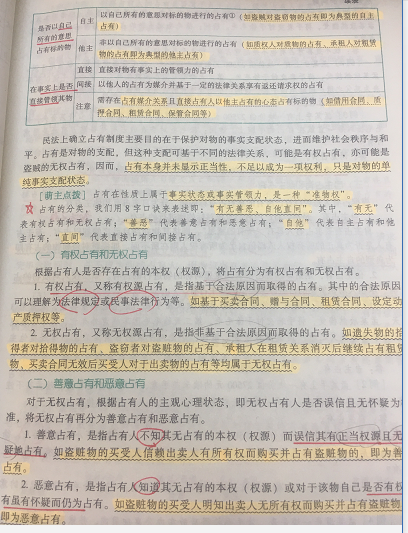 是否以自己所有的意思占有标的物
自主
以自己所有的意思对标的物进行的占有①（如盗贼对盗窃物的占有即为典型的自主占有）
他主
非以自己所有的意思对标的物进行的占有（如质权人对质物的占有、承租人对租赁物的占有即为典型的他主占有）
在事实上是否直接管领其物
直接
直接对物有事实上的管领力的占有
间接
以他人的占有为媒介并基于一定的法律关系享有返还请求权的占有
注意
需存在占有媒介关系且直接占有人以他主占有的心态占有标的物（如借用合同、质押合同、租赁合同、保管合同等）
民法上确立占有制度主要目的在于保护对物的事实支配状态，进而维护社会秩序与和
平。占有是对物的支配，但这种支配可基于不同的法律关系，可能是有权占有，亦可能是
盗贼的无权占有，因而，占有本身并未显示正当性、不足以成为一项权利，只是对物的单
纯事实支配状态。
［萌主点拨］占有在性质上属于事实状态或事实管领力，是一种“准物权”。
占有的分类，我们用8字口诀来表述即：“有无善恶、自他直间”。其中，“有无”代
表有权占有和无权占有；“善恶”代表善意占有和恶意占有；“自他”代表自主占有和他
主占有；“直间”代表直接占有和间接占有。
（一）有权占有和无权占有
根据占有人是否存在占有的本权（权源），将占有分为有权占有和无权占有。
1. 有权占有，又称有权源占有，是指基于合法原因而取得的占有。其中的合法原因
可以理解为法律规定或民事法律行为等。如基于买卖合同、赠与合同、租赁合同、设定动
产质押权等。
2. 无权占有，又称无权源占有，是指非基于合法原因而取得的占有。如遗失物的拾
得者对拾得物的占有、盗窃者对盗赃物的占有、承租人在租赁关系消灭后继续占有租赁
物、买卖合同无效后买受人对于出卖物的占有等均属于无权占有。
（二）善意占有和恶意占有
对于无权占有，根据占有人的主观心理状态，即无权占有人是否误信且无怀疑为
准，将无权占有再分为善意占有和恶意占有。
1. 善意占有，是指占有人不知其无占有的本权（权源）而误信其有正当权源且无
疑地占有。如盗赃物的买受人信赖出卖人有所有权而购买并占有盗赃物的，即为善
占有。
2. 恶意占有，是指占有人知道其无占有的本权（权源）或对于该物自己是否有权
有虽有怀疑而仍为占有。如盗赃物的买受人明知出卖人无所有权而购买并占有盗赃物
即为恶意占有。